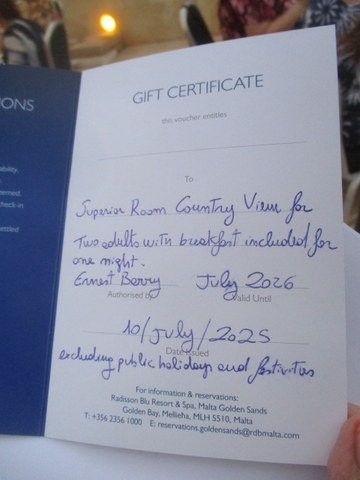 IONS
GIFT CERTIFICATE
this voucher entitles
ability.
emed.
check-in
settled
To
Superior Room Country View for
Two adults with breakfast included for
one night.
Ernest Berry July 2026
Authorised by Valid Until
10/July/2025
Date Issued
excluding public holidays and festivities
For information & reservations:
Radisson Blu Resort & Spa, Malta Golden Sands
Golden Bay, Mellieha, MLH 5510, Malta
T: +356 2356 1000 E: reservations.goldensands@rdbmalta.com